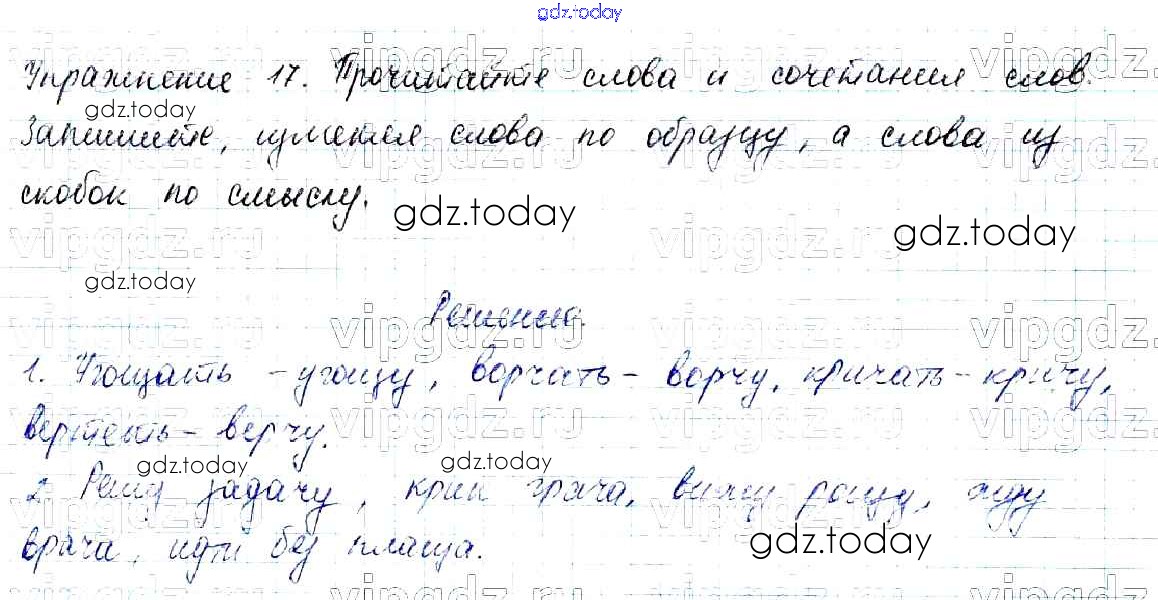 gdz.today
Упражнение 17. Прочитайте слова и сочетания слов.
gdz.today
Запишите, изменяя слова по образцу, а слова из
скобок по смыслу.
gdz.today
gdz.today
gdz.today
Решение.
1. Угощать - угощу, ворчать - ворчу, кричать - кричу,
вертеть - верчу.
gdz.today
gdz.today
2. Решу задачу, крик грача, вижу рощу, жду
врача, идти без плаща.
gdz.today
vipgdz.ru